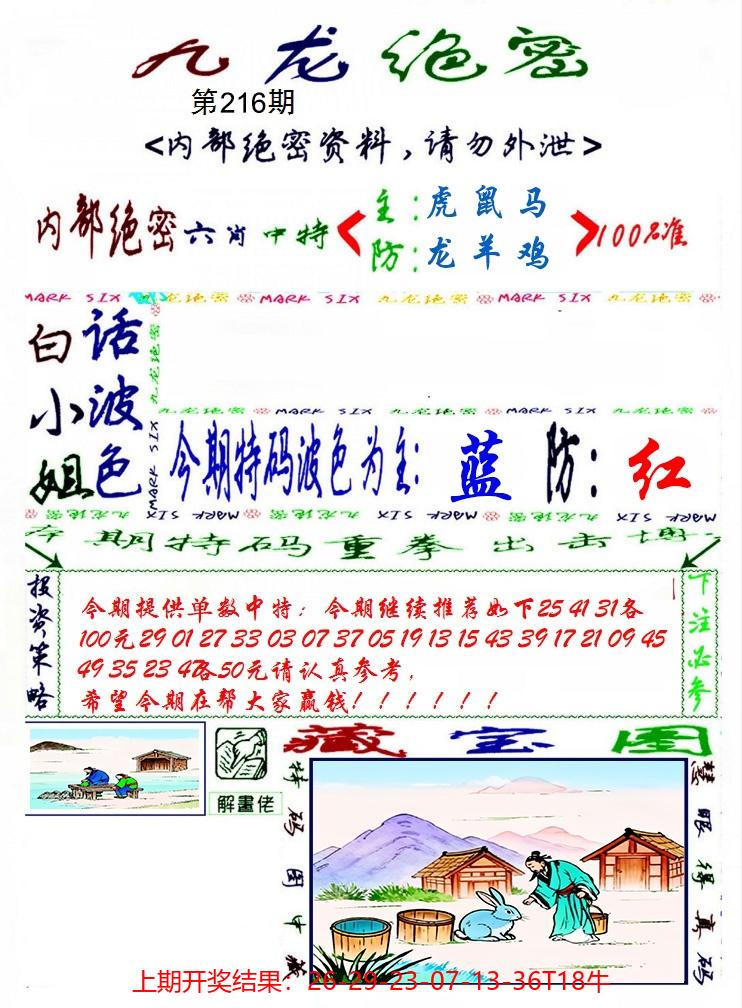 九龙绝密
第216期
<内部绝密资料，请勿外泄>
内部绝密六肖中特
主：虎鼠马
防：龙羊鸡
100%准
MARK SIX 九龙绝密 MARK SIX 九龙绝密 MARK SIX 九龙绝密
白小姐
话波色
九龙绝密 MARK SIX
九龙绝密 MARK SIX 九龙绝密 MARK SIX 九龙绝密
今期特码波色为主：蓝 防：红
九龙绝密 MARK SIX 九龙绝密 MARK SIX 九龙绝密 MARK SIX
本期特码重拳出击博
投资策略
今期提供单数中特：今期继续推荐如下25 41 31各
100元 29 01 27 33 03 07 37 05 19 13 15 43 39 17 21 09 45
49 35 23 47各50元请认真参考，
希望今期在帮大家赢钱！！！！！！
下注必参
藏宝图
解畫佬
特码图中藏
慧眼得真码
上期开奖结果：26-29-23-07-13-36T18牛